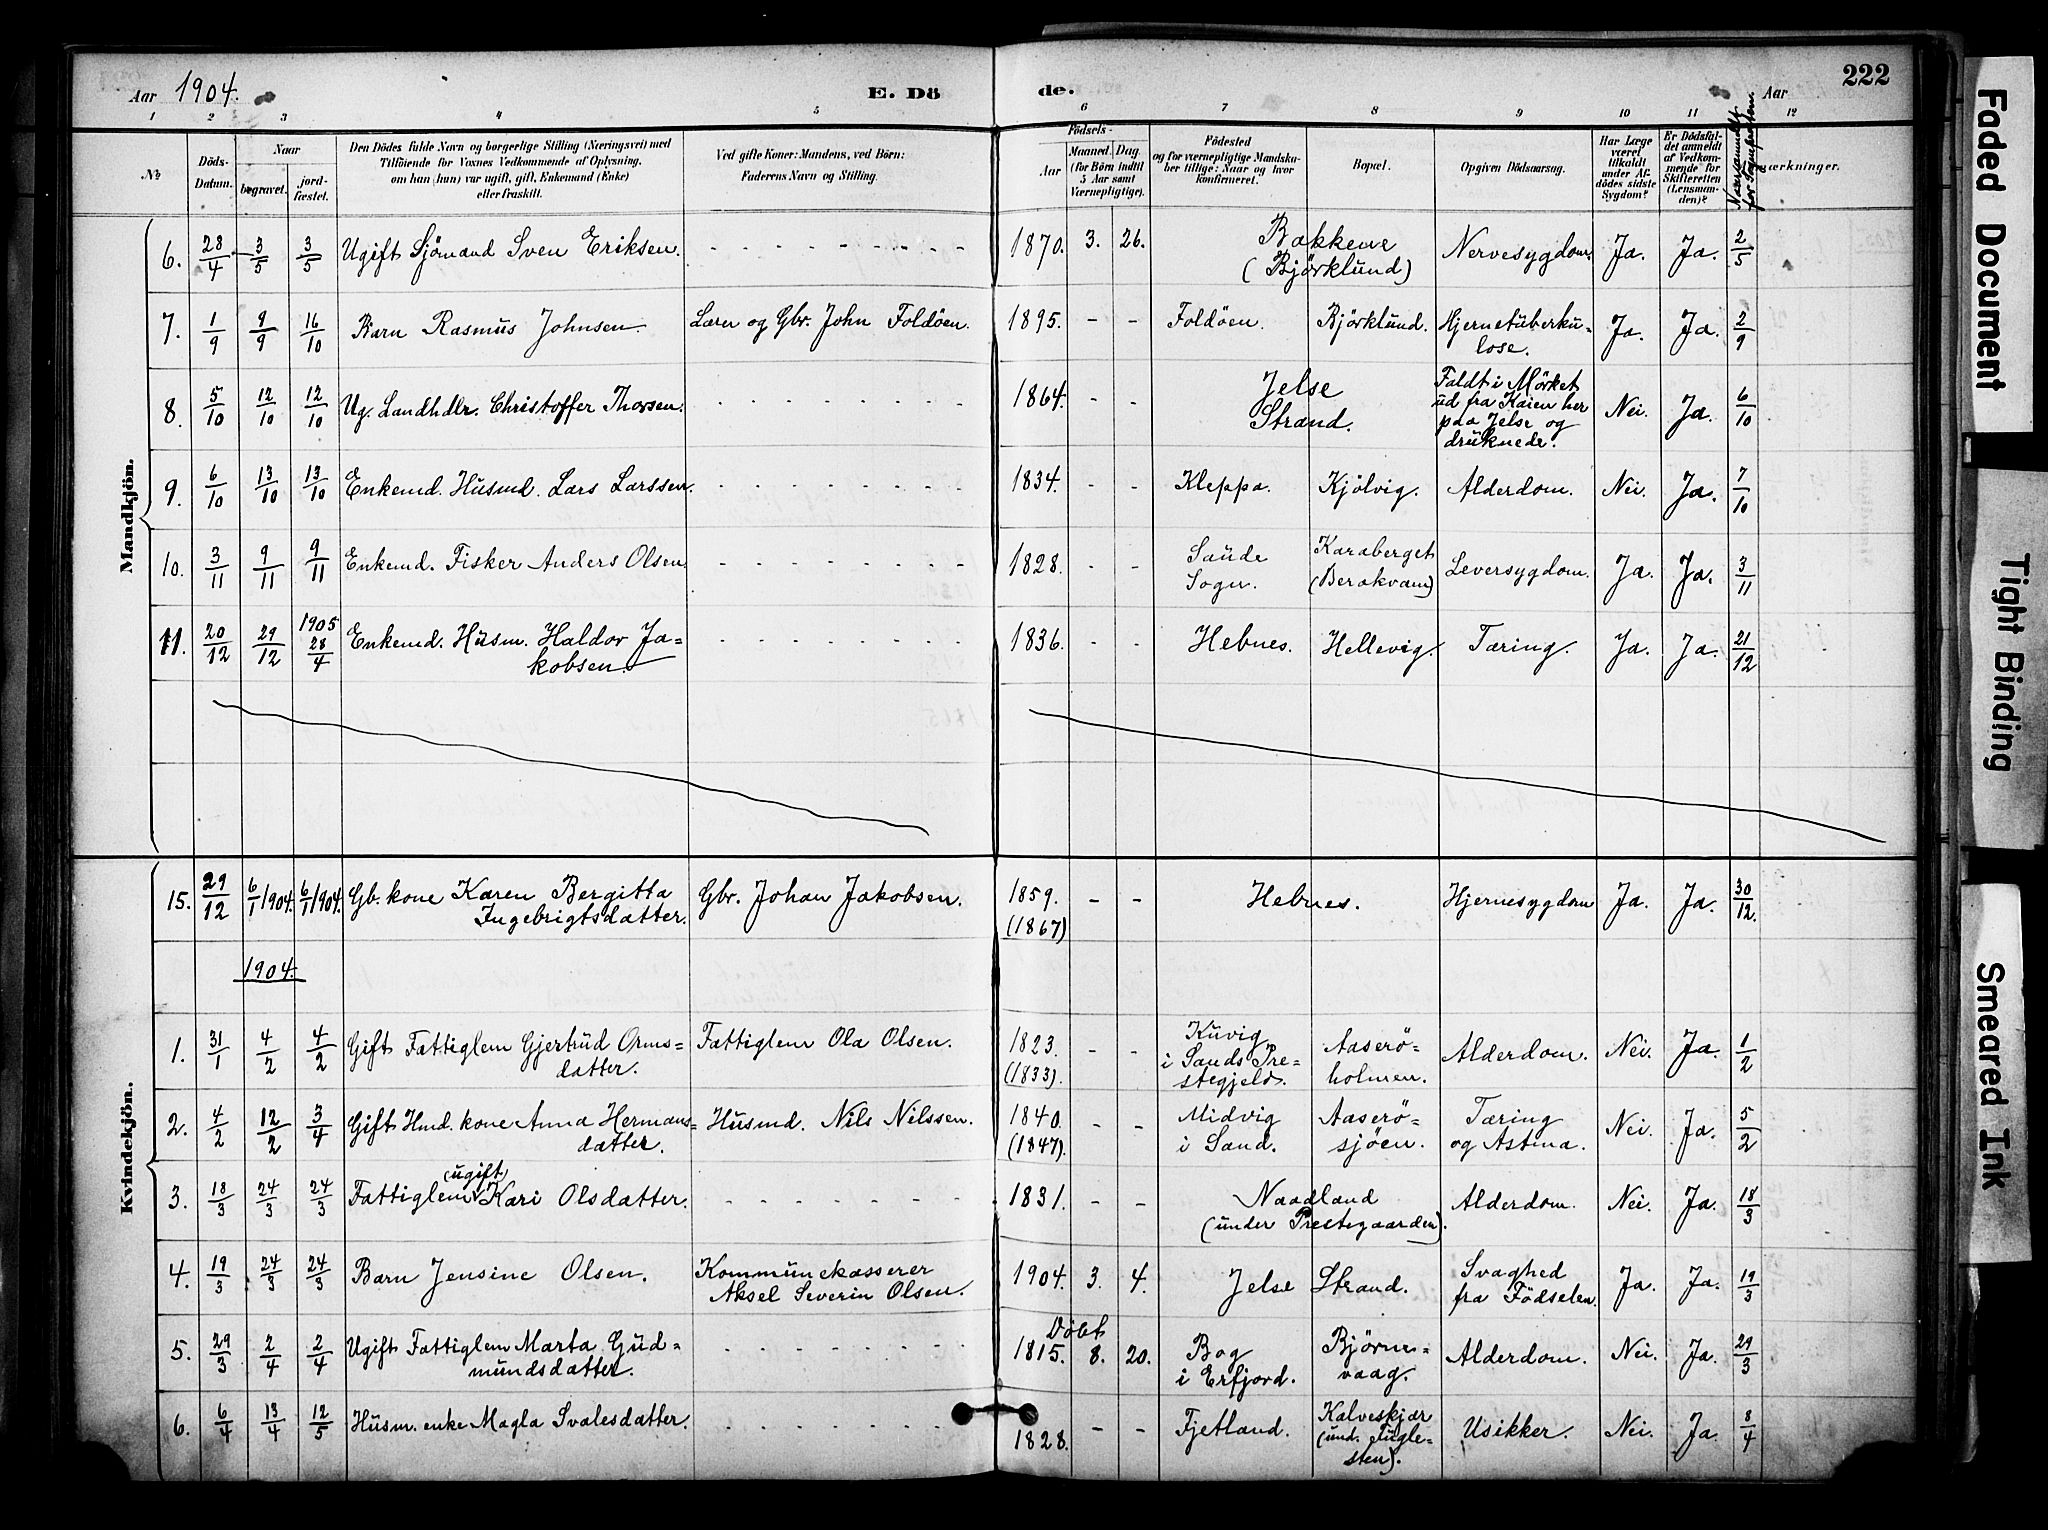 Aar 1904. E. Döde. Aar 222
1 2 3 4 5 6 7 8 9 10 11 12
№ Döds-Datum. Naar begravet. jordfæstet. Den Dödes fulde Navn og borgerlige Stilling (Næringsvei) med Tilföiende for Voxnes Vedkommende af Oplysning, om han (hun) var ugift, gift, Enkemand (Enke) eller fraskilt. Ved gifte Koner: Mandens, ved Börn: Faderens Navn og Stilling. Födsels- Aar Maaned. Dag. (for Börn indtil 5 Aar samt Værnepligtige). Födested og for værnepligtige Mandskaber tillige: Naar og hvor konfirmeret. Bopæl. Opgiven Dödsaarsag. Har Læge været tilkaldt under Afdödes sidste Sygdom? Er Dödsfaldet anmeldt af Vedkommende for Skifteretten (Lensmanden)?
Mandkjön.
6. 28/4 3/5 3/5 Ugift Sjömand Sven Eriksen. 1870. 3. 26. Bakkene (Björklund) Nervesygdom. Ja. Ja. 2/5
7. 1/9 9/9 16/10 Barn Rasmus Johnsen Lærer og Gbr. John Foldöen. 1895. - - Foldöen. Björklund. Hjernetuberkulose. Ja. Ja. 2/9
8. 5/10 12/10 12/10 Ug. Landhdlr. Christoffer Thorsen. 1864. - - Jelse Strand. Faldt i Mörket ud fra Kaien her paa Jelse og druknede. Nei. Ja. 6/10
9. 6/10 13/10 13/10 Enkemd. Husmd. Lars Larssen. 1834. - - Kleppa. Kjölvig. Alderdom. Nei. Ja. 7/10
10. 3/11 9/11 9/11 Enkemd. Fisker Anders Olsen 1828. - - Saude Sogn. Karaberget (Berakvam) Leversygdom. Ja. Ja. 3/11
11. 20/12 29/12 1905 28/4 Enkemd. Husm. Haldor Jakobsen. 1836. - - Hebnes. Hellevig. Tæring. Ja. Ja. 21/12
Kvindekjön.
15. 29/12 6/1 1904. 6/1 1904. Gb. kone Karen Bergitta Ingebrigtsdatter. Gbr. Johan Jakobsen. 1859. (1867) - - Hebnes. Hjernesygdom Ja. Ja. 30/12.
1904.
1. 31/1 4/2 4/2 Gift Fattiglem Gjertrud Ormsdatter. Fattiglem Ola Olsen. 1823. (1833). - - Kuvig i Sands Prestegjeld. Aaseröholmen. Alderdom. Nei. Ja. 1/2
2. 4/2 12/2 3/4 Gift Hmd. kone Anna Hermansdatter. Husmd. Nils Nilssen. 1840. (1847). - - Midvig i Sand. Aaserösjöen. Tæring og Astma. Nei. Ja. 5/2
3. 18/3 24/3 24/3 Fattiglem (ugift) Kari Olsdatter. 1831. - - Naadland (under Prestegaarden). Alderdom. Nei. Ja. 18/3
4. 19/3 24/3 24/3 Barn Jensine Olsen. Kommunekasserer Aksel Severin Olsen. 1904. 3. 4. Jelse Strand. Svaghed fra Födselen. Ja. Ja. 19/3
5. 29/3 2/4 2/4 Ugift Fattiglem Marta Gudmundsdatter. Döbt 1815. 8. 20. Bog i Erfjord. Björnevaag. Alderdom. Nei. Ja. 29/3
6. 6/4 13/4 12/5 Husm. enke Magla Svalesdatter. 1828. - - Fjetland. Kalveskjær Usikker. Nei. Ja. 8/4
Faded Document
Tight Binding
Smeared Ink